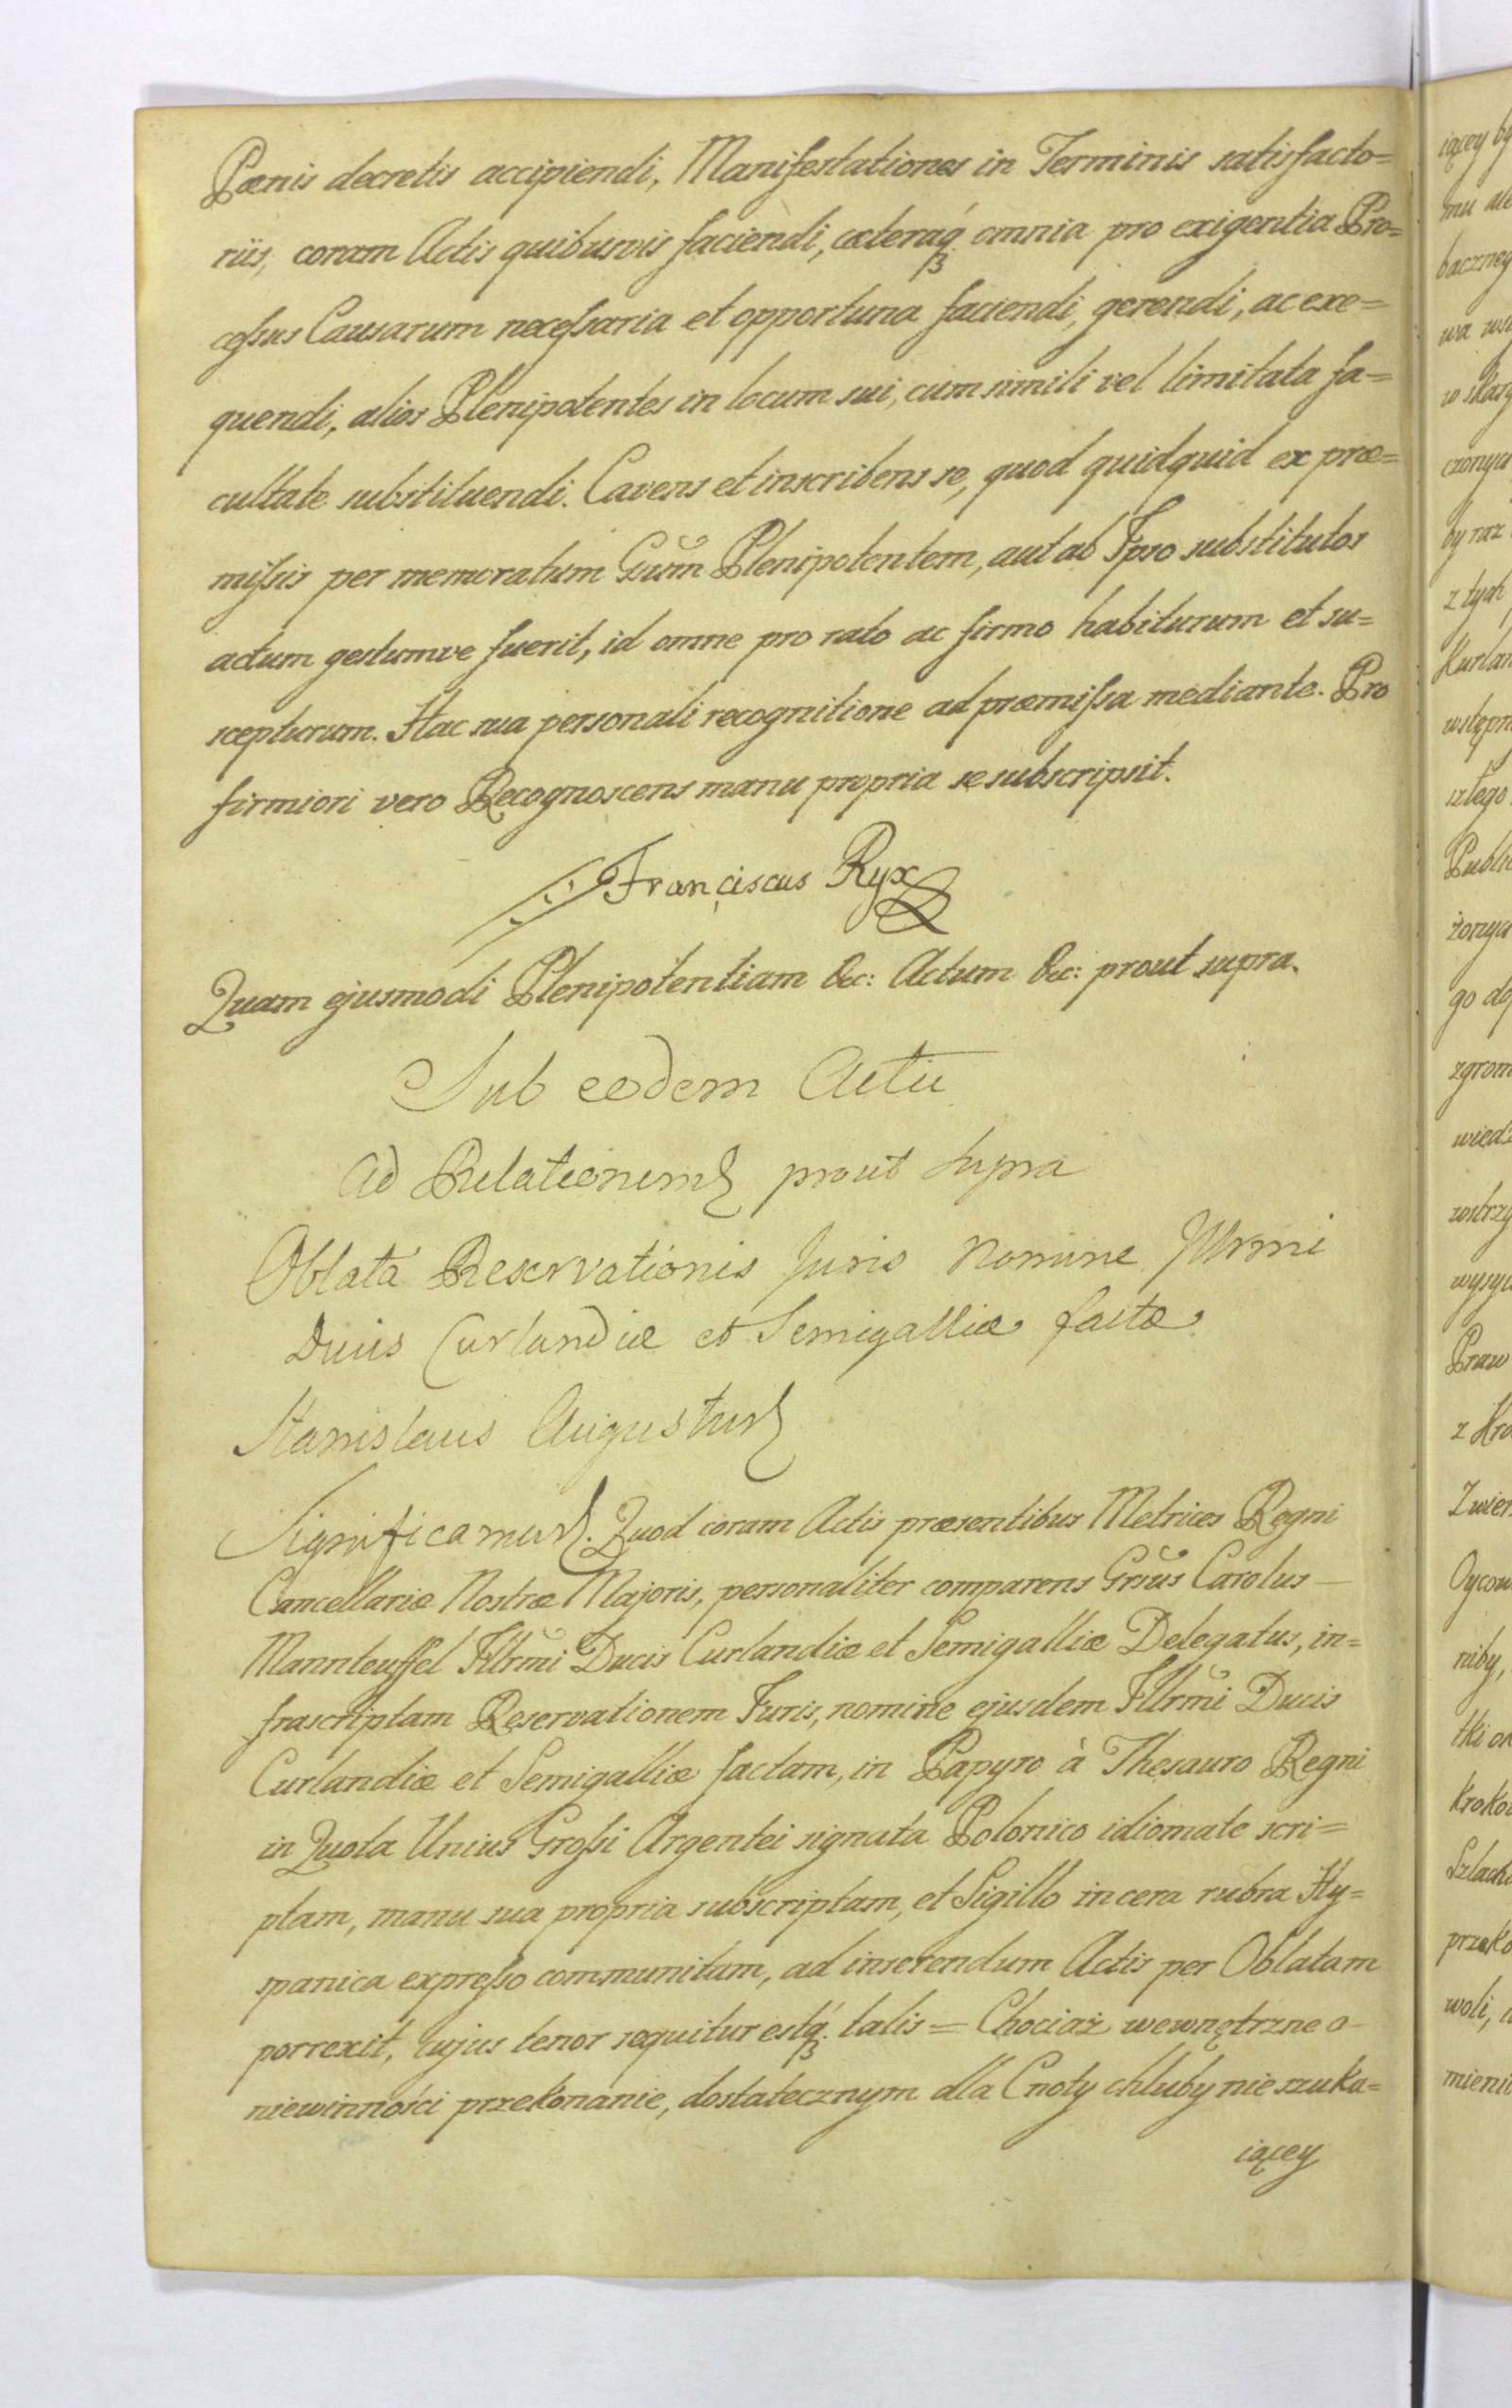 Pœnis decretis accipiendi, Manifestationes in Terminis satisfacto=
riis, coram Actis quibusvis faciendi, cæteraq́ꝫ omnia pro exigentia Pro=
cessus Causarum necessaria et opportuna faciendi, gerendi, ac exe=
quendi, alios Plenipotentes in locum sui, cum simili vel limitata fa=
cultate substituendi. Cavens et inscribens se, quod quidquid ex præ=
missis per memoratum Gsum Plenipotentem, aut ab Ipso substitutos
actum gestumve fuerit, id omne pro rato ac firmo habiturum et su=
scepturum. Hac sua personali recognitione ad præmissa mediante. Pro
firmiori vero Recognoscens manu propria se subscripsit.
Franciscus Ryx
Quam ejusmodi Plenipotentiam &c: Actum &c: prout supra.
Sub eodem Actu
Ad Relationem prout supra
Oblata Reservationis Juris Nomine Illrmi
Ducis Curlandiæ et Semigalliæ factæ
Stanislaus Augustus
Significamus. Quod coram Actis præsentibus Metrices Regni
Cancellariæ Nostræ Majoris, personaliter comparens Grsus Carolus
Mannteuffel Illrmi Ducis Curlandiæ et Semigalliæ Delegatus, in=
frascriptam Reservationem Juris, nomine ejusdem Illrmi Ducis
Curlandiæ et Semigalliæ factam, in Papyro à Thesauro Regni
in Quota Unius Grossi Argentei signata Polonico idiomate scri=
ptam, manu sua propria subscriptam, et Sigillo in cera rubra Hy=
spanica expresso communitam, ad inserendum Actis per Oblatam
porrexit, cujus tenor sequitur estq́ꝫ talis = Chociaż wewnętrzne o
niewinności przekonanie, dostatecznym dla Cnoty chluby nie szuka=
iącey